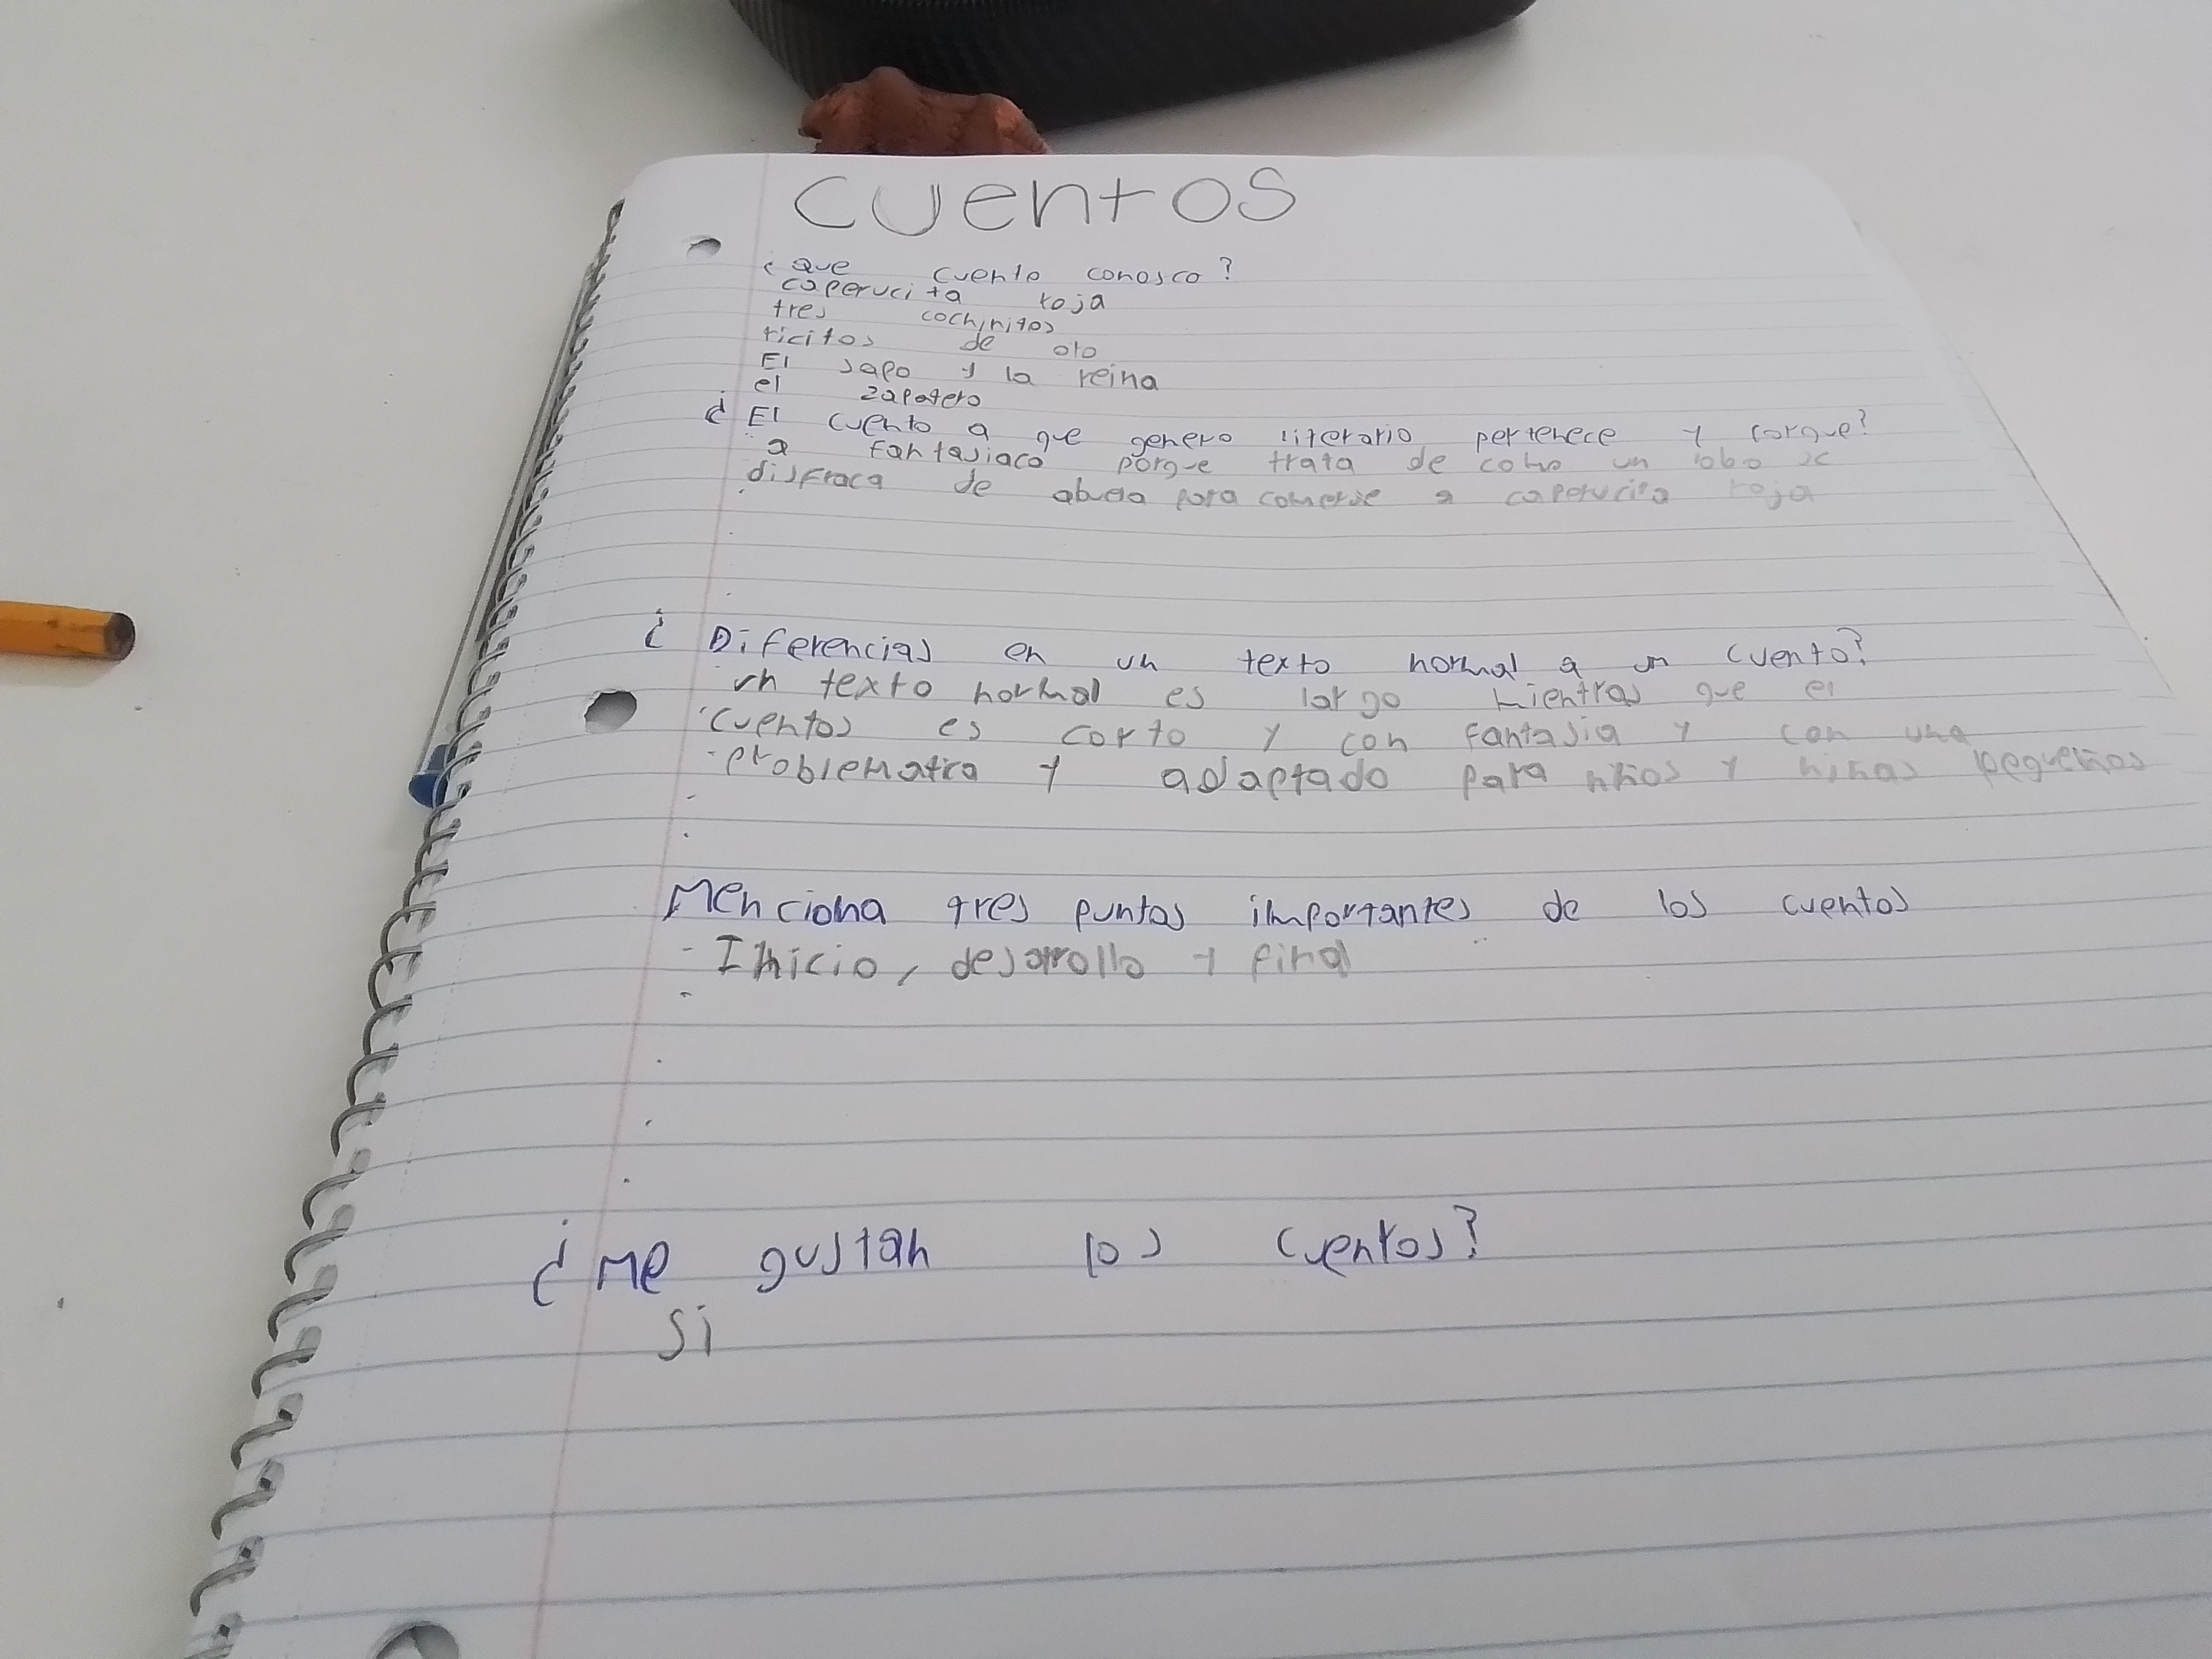 cuentos
¿ que cuento conosco?
caperucita roja
tres cochinitos
ricitos de oro
El sapo y la reina
el zapatero
¿ El cuento a que genero literario pertenece y porque?
a fantasiaco porque trata de como un lobo se
disfraca de abuela para comerse a caperucita roja
¿ Diferencias en un texto normal a un cuento?
un texto normal es largo mientras que el
cuentos es corto y con fantasia y con una
problematica y adaptado para niños y niñas pequeños
Menciona tres puntos importantes de los cuentos
- Inicio, desarrollo y final
¿ Me gustan los cuentos?
si